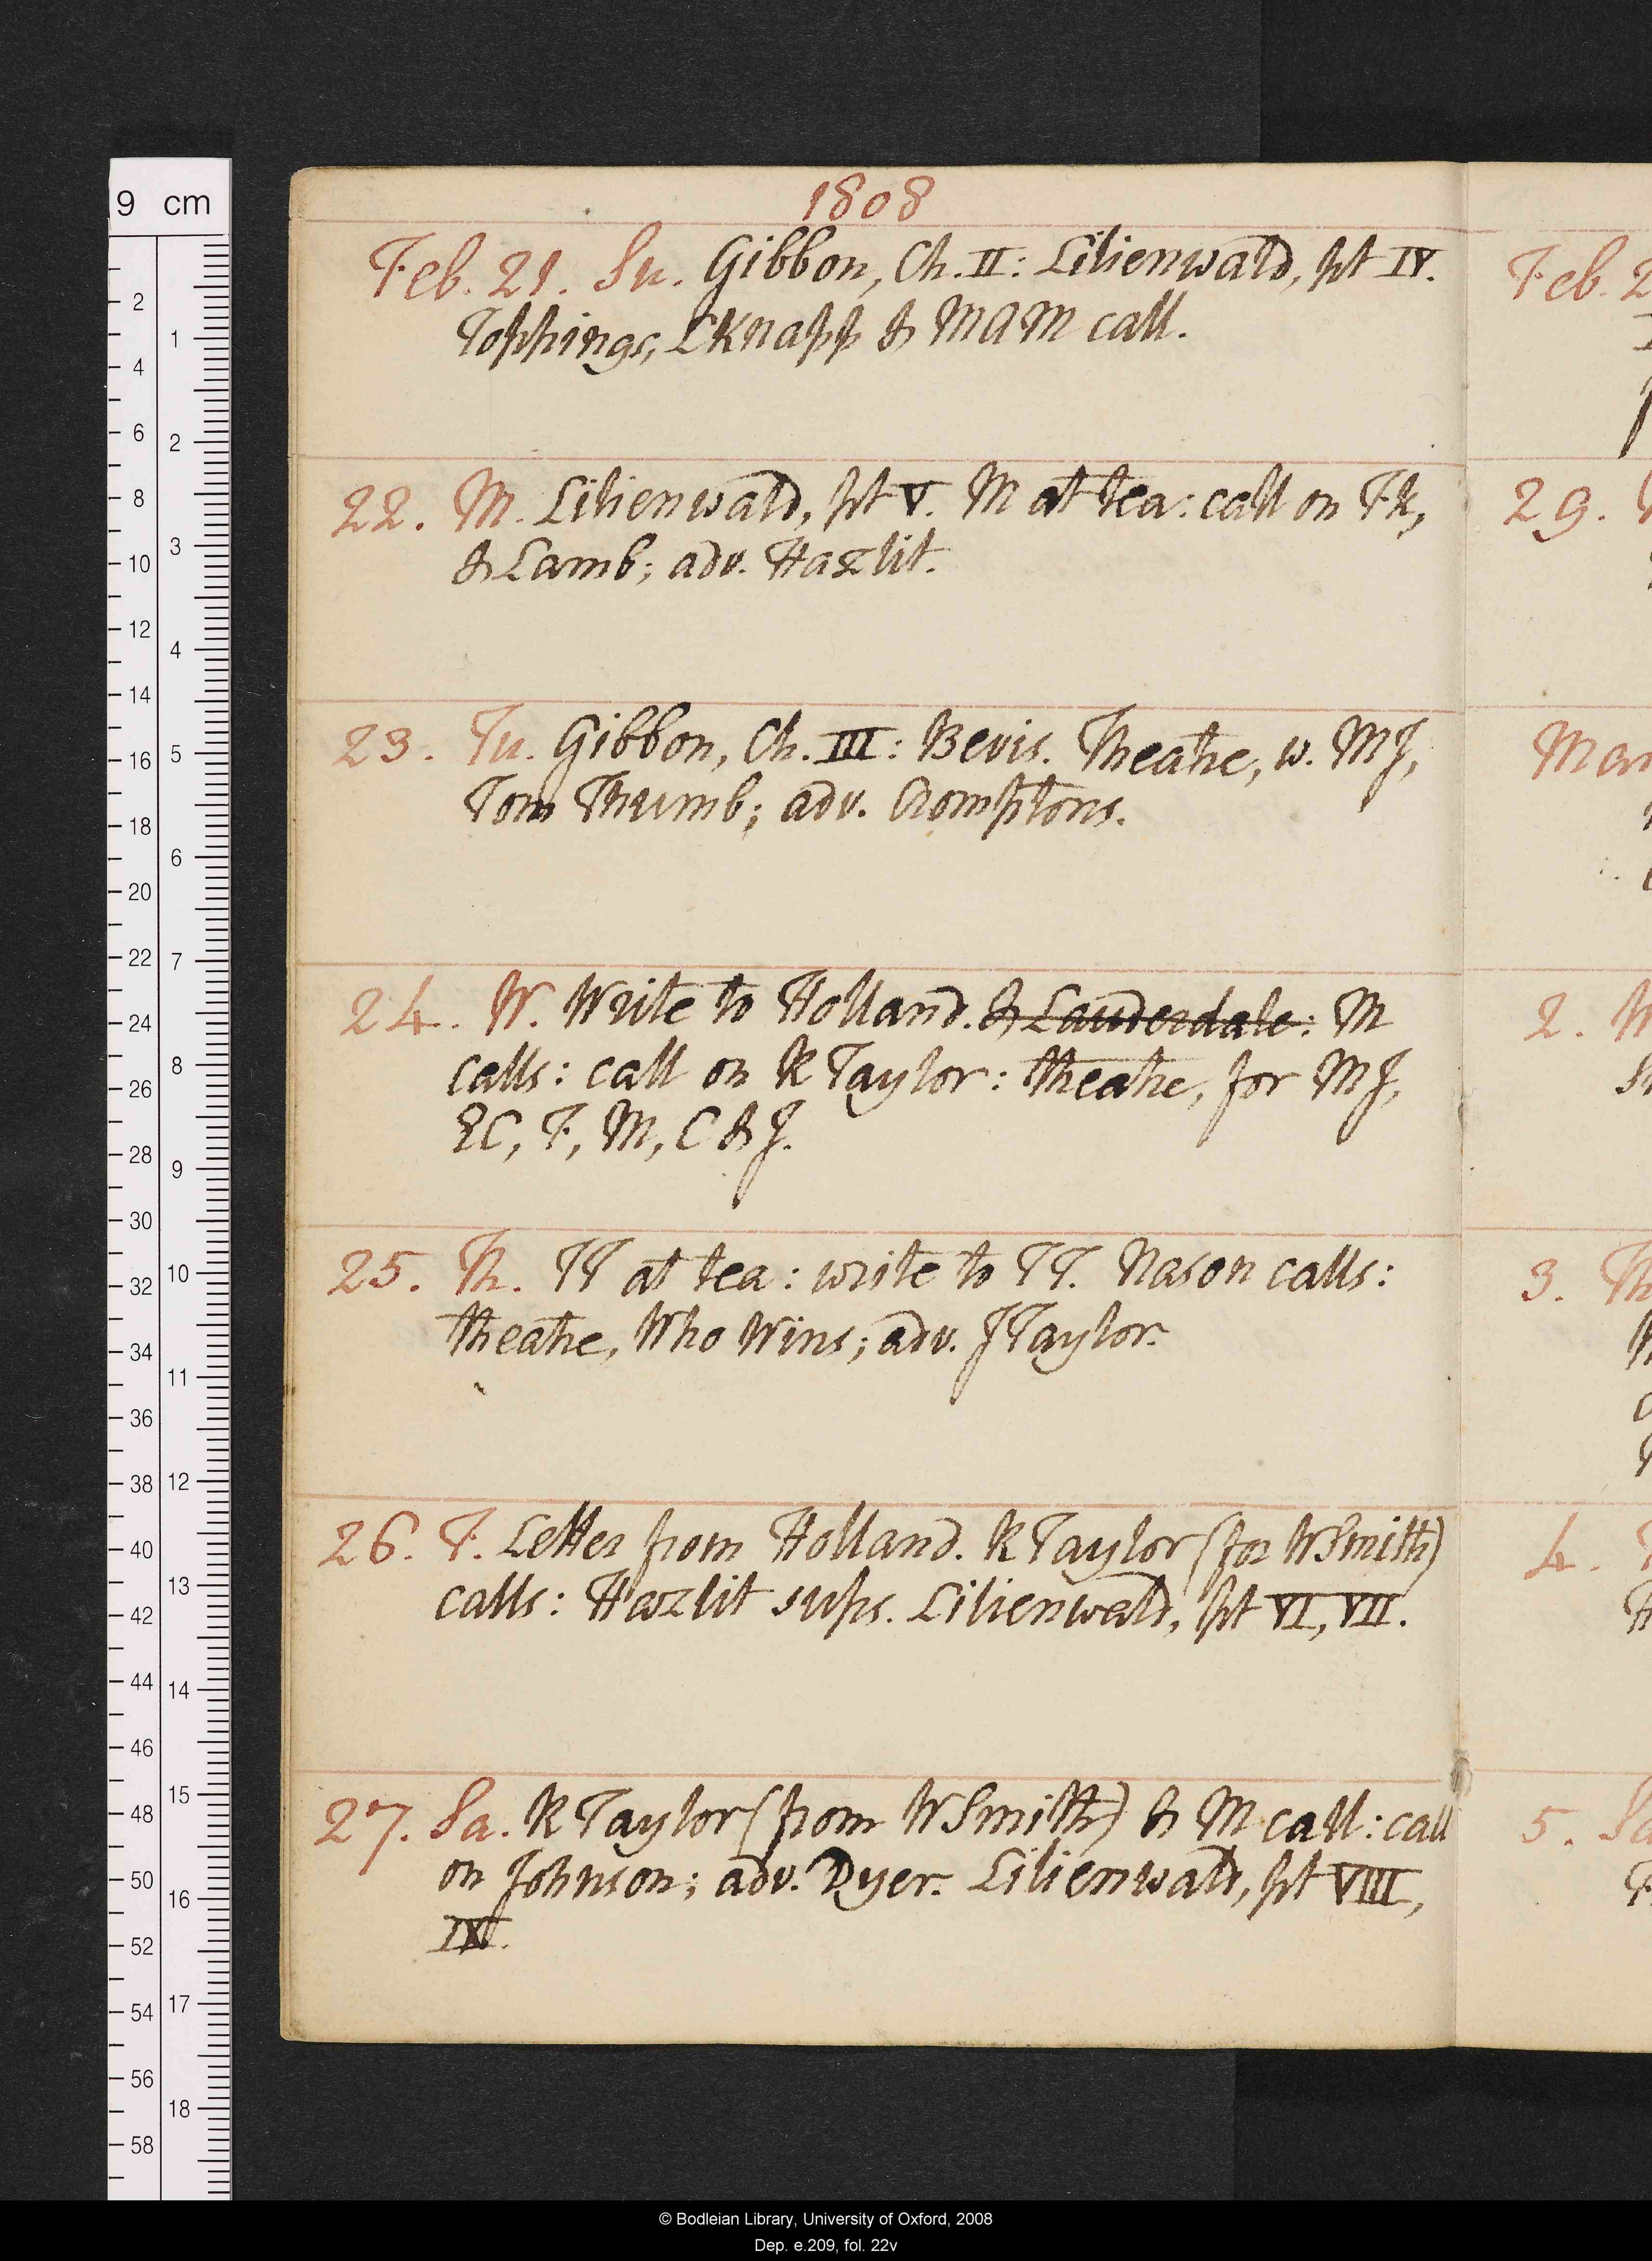 1808
Feb. 21. Su. Gibbon, Ch. II: Lilienwald, pt IV.
Toppings, LKnapp & MAM call.
22. M. Lilienwald, pt V. M at tea: call on Fk,
& Lamb; adv. Hazlit.
23. Tu. Gibbon, Ch. III: Bevis. Theatre, w. MJ,
Tom Thumb; adv. Cromptons.
24. W. Write to Holland. & Lauderdale: M
calls: call on R Taylor: theatre, for MJ,
EC, F, M, C & J.
25. Th. TT at tea: write to TT. Nason calls:
theatre, Who Wins; adv. JTaylor.
26. F. Letter from Holland. R Taylor (for WSmith)
calls: Hazlit sups. Lilienwald, pt VI, VII.
27. Sa. R Taylor (from WSmith) & M call: call
on Johnson; adv. Dyer. Lilienwald, pt VIII,
IX.
Feb. 2
29.
Mar
2.
3. Th
4.
5. Sa
9 cm
2
4
6
8
10
12
14
16
18
20
22
24
26
28
30
32
34
36
38
40
42
44
46
48
50
52
54
56
58
1
2
3
4
5
6
7
8
9
10
11
12
13
14
15
16
17
18
© Bodleian Library, University of Oxford, 2008
Dep. e.209, fol. 22v